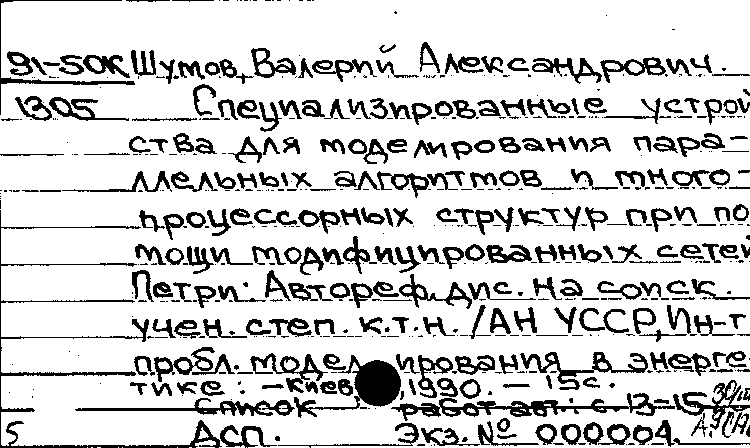 91-50К Шумов, Валерий Александрович.
1305 Специализированные устрой
ства для моделирования пара-
ллельных алгоритмов и много-
процессорных структур при по
мощи модифицированных сетей
Петри: Автореф. дис. на соиск.
учен. степ. к.т.н. /АН УССР, Ин-т
пробл. моделирования в энерге
тике: - Киев, 1990. - 15с.
Список работ авт.: с. 13-15
5 ДСП. Экз. № 000004